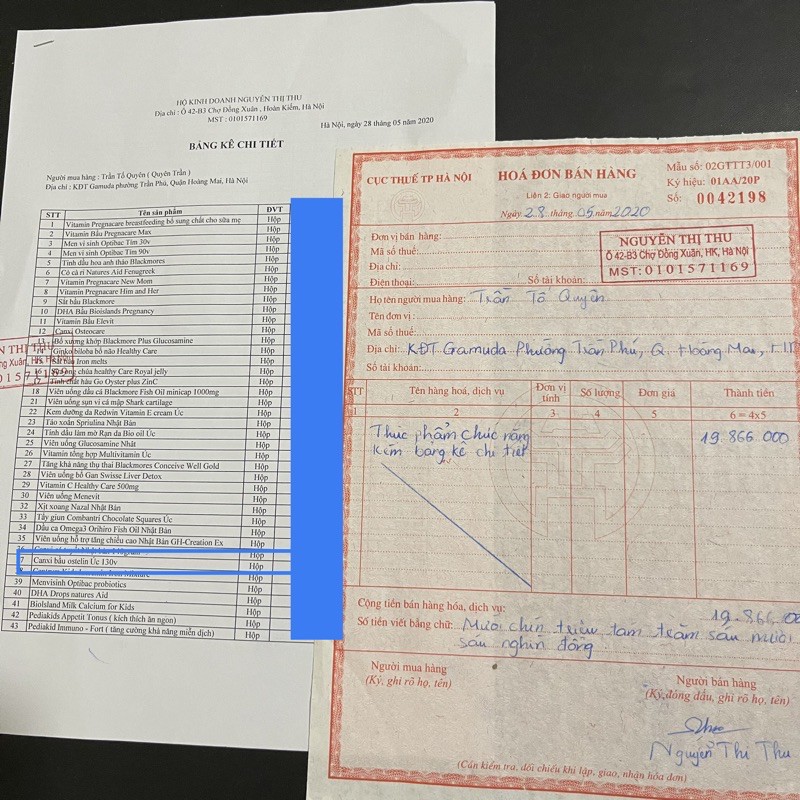 HỘ KINH DOANH NGUYỄN THỊ THU
Địa chỉ : Ô 42-B3 Chợ Đồng Xuân , Hoàn Kiếm, Hà Nội
MST : 0101571169
Hà Nội, ngày 28 tháng 05 năm 2020
BẢNG KÊ CHI TIẾT
Người mua hàng : Trần Tố Quyên ( Quyên Trần )
Địa chỉ : KĐT Gamuda phường Trần Phú, Quận Hoàng Mai, Hà Nội
STT Tên sản phẩm ĐVT
1 Vitamin Pregnacare breastfeeding bổ sung chất cho sữa mẹ Hộp
2 Vitamin Bầu Pregnacare Max Hộp
3 Men vi sinh Optibac Tím 30v Hộp
4 Men vi sinh Optibac Tím 90v Hộp
5 Tinh dầu hoa anh thảo Blackmores Hộp
6 Cỏ cà ri Natures Aid Fenugreek Hộp
7 Vitamin Pregnacare New Mom Hộp
8 Vitamin Pregnacare Him and Her Hộp
9 Sắt bầu Blackmore Hộp
10 DHA Bầu Bioislands Pregnancy Hộp
11 Vitamin Bầu Elevit Hộp
12 Canxi Osteocare Hộp
13 Bổ xương khớp Blackmore Plus Glucosamine Hộp
14 Ginko biloba bổ não Healthy Care Hộp
Iron melts Hộp
16 Sữa ong chúa healthy Care Royal jelly Hộp
17 Tinh chất hàu Go Oyster plus ZinC Hộp
18 Viên uống dầu cá Blackmore Fish Oil minicap 1000mg Hộp
21 Viên uống sụn vi cá mập Shark cartilage Hộp
22 Kem dưỡng da Redwin Vitamin E cream Úc Hộp
23 Tảo xoắn Spriulina Nhật Bản Hộp
24 Tinh dầu làm mờ Rạn da Bio oil Úc Hộp
25 Viên uống Glucosamine Nhật Hộp
26 Vitamin tổng hợp Multivitamin Úc Hộp
27 Tăng khả năng thụ thai Blackmores Conceive Well Gold Hộp
28 Viên uống bổ Gan Swisse Liver Detox Hộp
29 Vitamin C Healthy Care 500mg Hộp
30 Viên uống Menevit Hộp
32 Xịt xoang Nazal Nhật Bản Hộp
33 Tẩy giun Combantri Chocolate Squares Úc Hộp
34 Dầu ca Omega3 Orihiro Fish Oil Nhật Bản Hộp
35 Viên uống hỗ trợ tăng chiều cao Nhật Bản GH-Creation Ex Hộp
Hộp
7 Canxi bầu ostelin Úc 130v Hộp
Hộp
39 Menvisinh Optibac probiotics Hộp
40 DHA Drops natures Aid Hộp
41 BioIsland Milk Calcium for Kids Hộp
42 Pediakids Appetit Tonus ( kích thích ăn ngon) Hộp
43 Pediakid Immuno - Fort ( tăng cường khả năng miễn dịch) Hộp
CỤC THUẾ TP HÀ NỘI
HOÁ ĐƠN BÁN HÀNG
Liên 2: Giao người mua
Ngày 28 tháng 05 năm 2020
Mẫu số: 02GTTT3/001
Ký hiệu: 01AA/20P
Số: 0042198
Đơn vị bán hàng:
Mã số thuế:
Địa chỉ:
Điện thoại: Số tài khoản:
NGUYỄN THỊ THU
Ô 42-B3 Chợ Đồng Xuân, HK, Hà Nội
MST: 0101571169
Họ tên người mua hàng: Trần Tố Quyên
Tên đơn vị:
Mã số thuế:
Địa chỉ: KĐT Gamuda Phường Trần Phú, Q. Hoàng Mai, HN
Số tài khoản:
STT Tên hàng hoá, dịch vụ Đơn vị tính Số lượng Đơn giá Thành tiền
1 2 3 4 5 6 = 4x5
Thực phẩm chức năng 19.866.000
Kèm bảng kê chi tiết
Cộng tiền bán hàng hóa, dịch vụ: 19.866.00
Số tiền viết bằng chữ: Mười chín triệu tám trăm sáu mươi
sáu nghìn đồng
Người mua hàng
(Ký, ghi rõ họ, tên)
Người bán hàng
(Ký, đóng dấu, ghi rõ họ, tên)
Nguyễn Thị Thu
(Cần kiểm tra, đối chiếu khi lập, giao, nhận hóa đơn)